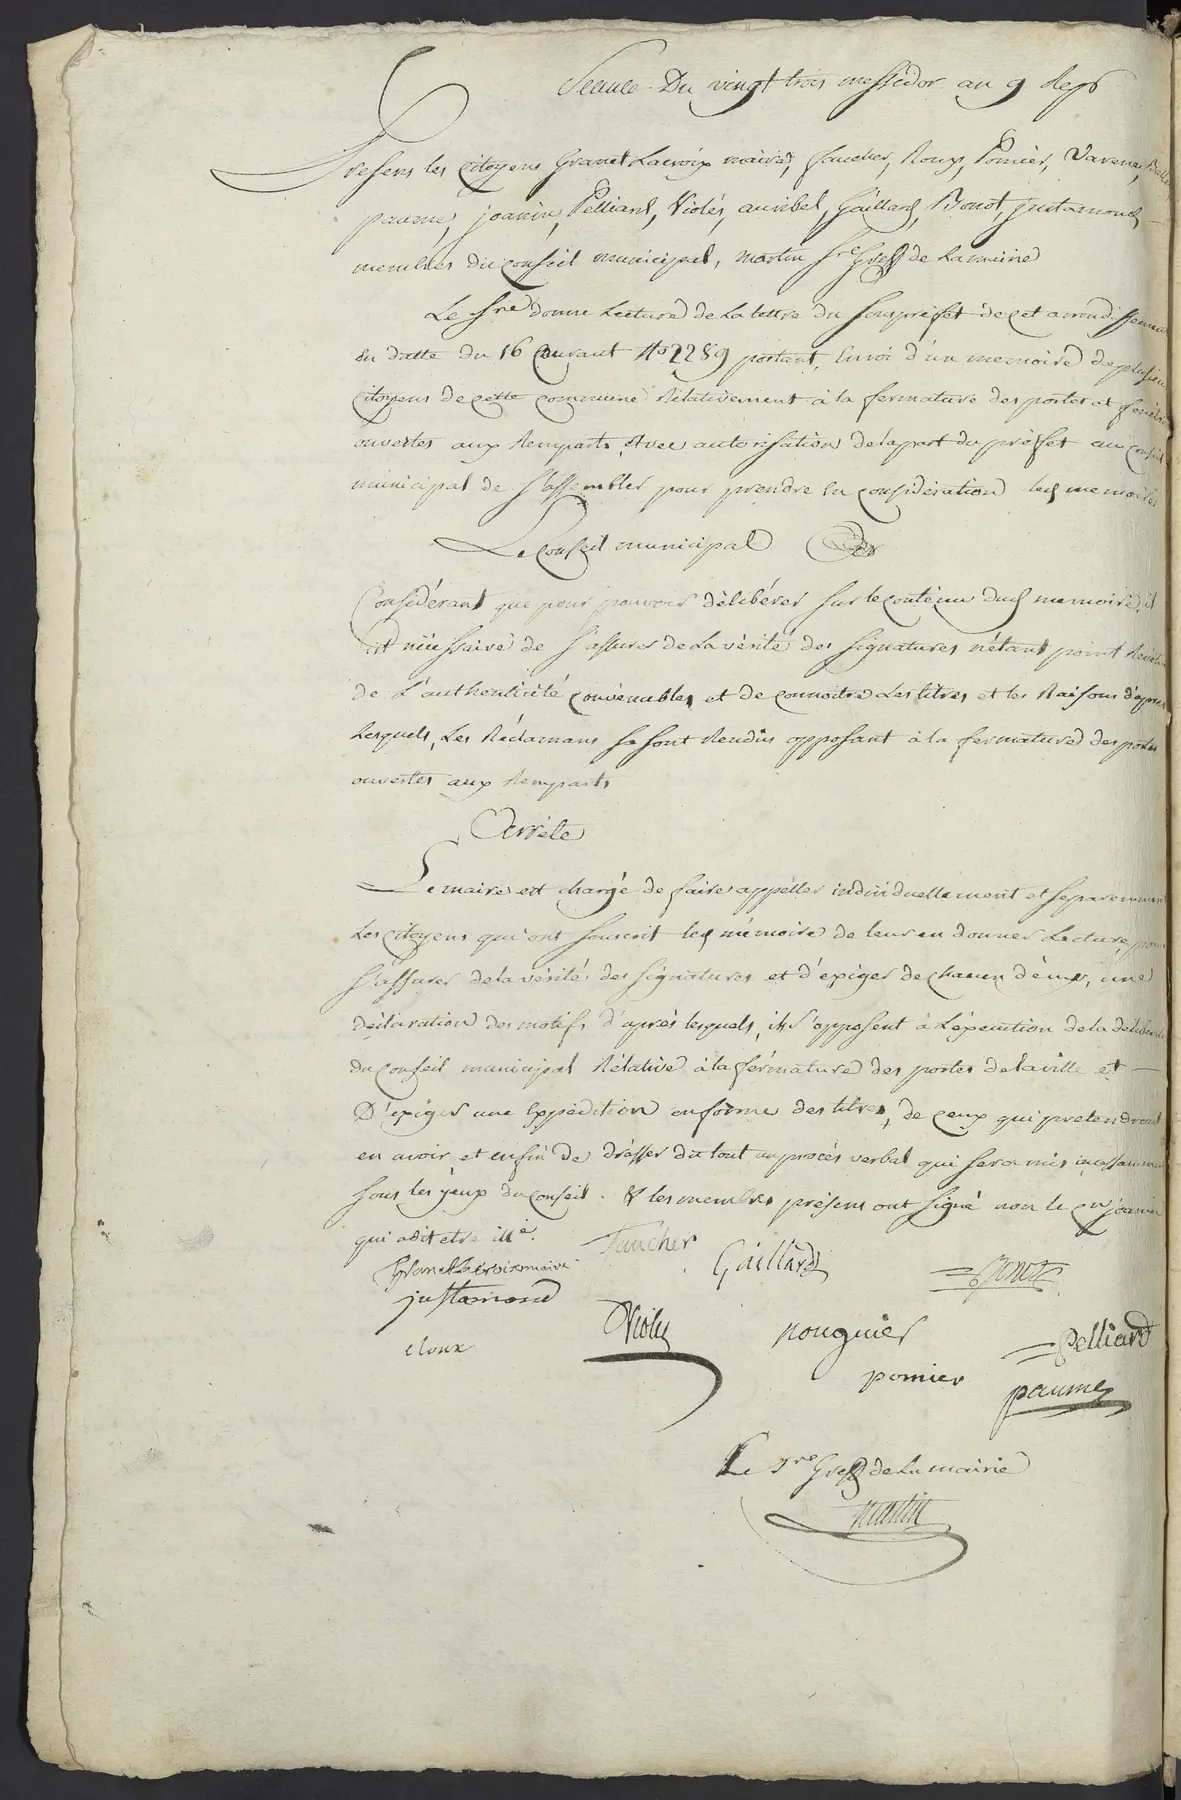 Seance Du vingt trois messidor an 9 Rep
Presens les Citoyens Granet Lacroix maire, faucher, Roux, Pomier, Varene,
paume, joanin, Pelliard, Violés, auribel, Gaillard, Bonot, justamond
membres du Conseil municipal, martin sre Greff de La mairie
Le sre donne Lecture de La lettre du Sous préfet de Cet arrondissement
En datte du 16 Courant No 2289 portant, Envoi d'un memoire de plusieurs
Citoyens de Cette Commune Rélativement à la fermature des portes et fenêtres
ouvertes aux Remparts, Avec autorisation de la part du préfet au Conseil
municipal de s'assembler pour prendre En Considération led memoire
Le Conseil municipal
Considérant que pour pouvoir délibérer sur le Contenu dud memoire, il
est nécessaire de s'assurer de La vérité des signatures n'étant point Revetues
de L'authenticité Convenable, et de Connoitre Les titres et les Raisons d'apres
Lesquels, Les Réclamans se sont Rendus opposant à la fermature des portes
ouvertes aux Remparts
Arrête
Le maire est chargé de faire appéller individuellement et séparemment
Les Citoyens qui ont souscrit led mémoire de leur en donner Lecture, pour
s'assurer de la vérité des signatures et d'éxiger de Chacun d'eux, une
déclaration des motifs d'après lesquels, ils s'opposent à L'éxécution de la déliberation
du Conseil municipal Rélative à la férmature des portes de la ville et
D'éxiger une Expédition en forme des titres, de Ceux qui pretendront
en avoir et enfin de drésser du tout un procés verbal qui sera mis incessamment
sous les yeux du Conseil. & les membres présens ont signé non le Cn joanin
qui a dit etre illé.
faucher Gaillard Bonot
Granet Lacroix maire
justamond
Violés nouguier Pelliard
Roux pomier paume
Le sre Greff de La mairie
martin